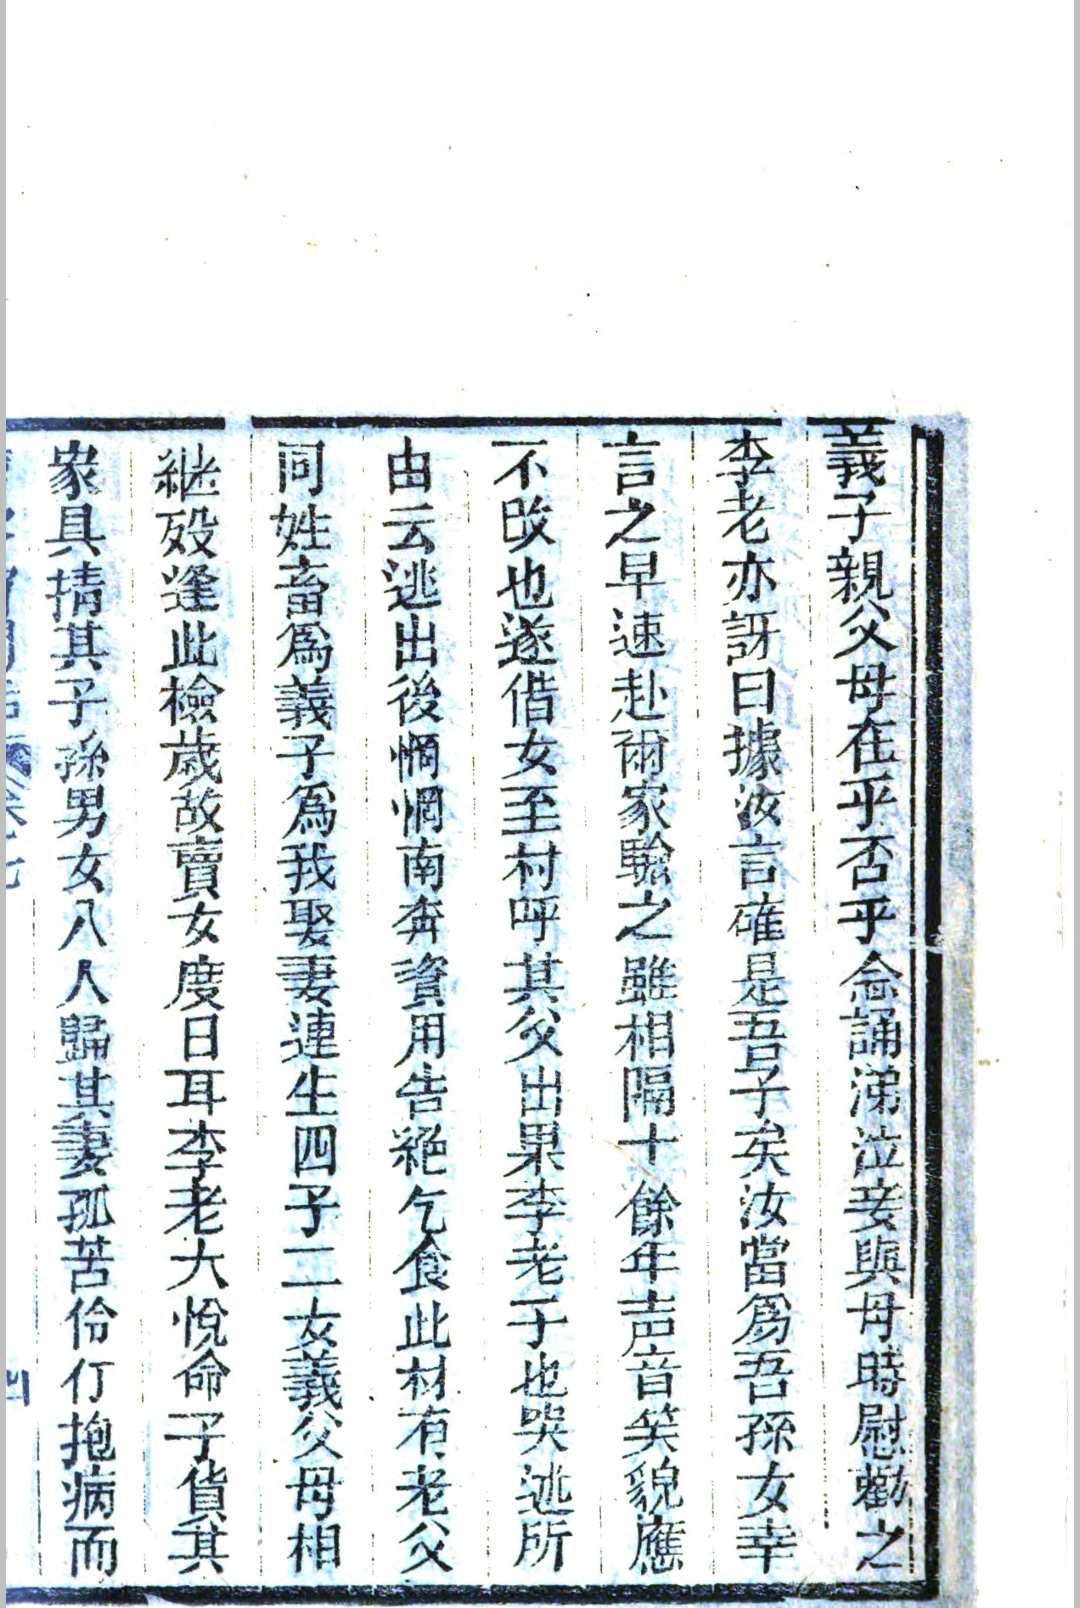 義子親父母在乎否乎念誦涕泣妾與母時慰勸之
李老亦訝曰據汝言確是吾子矣汝當爲吾孫女幸
言之早速赴爾家驗之雖相隔十餘年声音笑貌應
不改也遂偕女至村呼其父出果李老子也哭逃所
由云逃出後惘惘南奔資用告絶乞食此村有老父
同姓畜爲義子爲我娶妻連生四子二女義父母相
継殁逢此檢歳故賣女度日耳李老大悅命子貨其
家具掯其子孫男女八人歸其妻孤苦伶仃抱病而